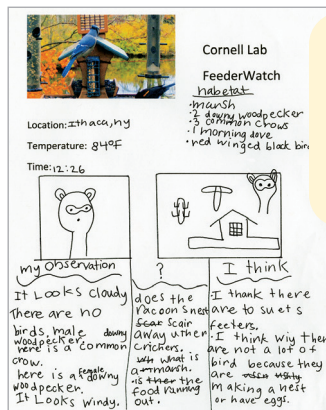 Cornell Lab
FeederWatch
habetat
•marsh
•2 downy woodpecker
•3 common crows
•1 morning dove
•red winged black bird
Location: Ithaca, ny
Temperature: 84°F
Time: 12:26
my observation
It Looks cloudy
There are no
birds, male downy
woodpecker.
here is a common
crow.
here is a female downy
woodpecker.
It Looks windy.
?
does the
racoon snest
scair
away uther
crichers.
what is
a marsh.
is ther the
food running
out.
I think
I thank there
are to suets
feeters.
• I think wiy ther
are not a lot of
bird because they
are
making a nest
or have eggs.